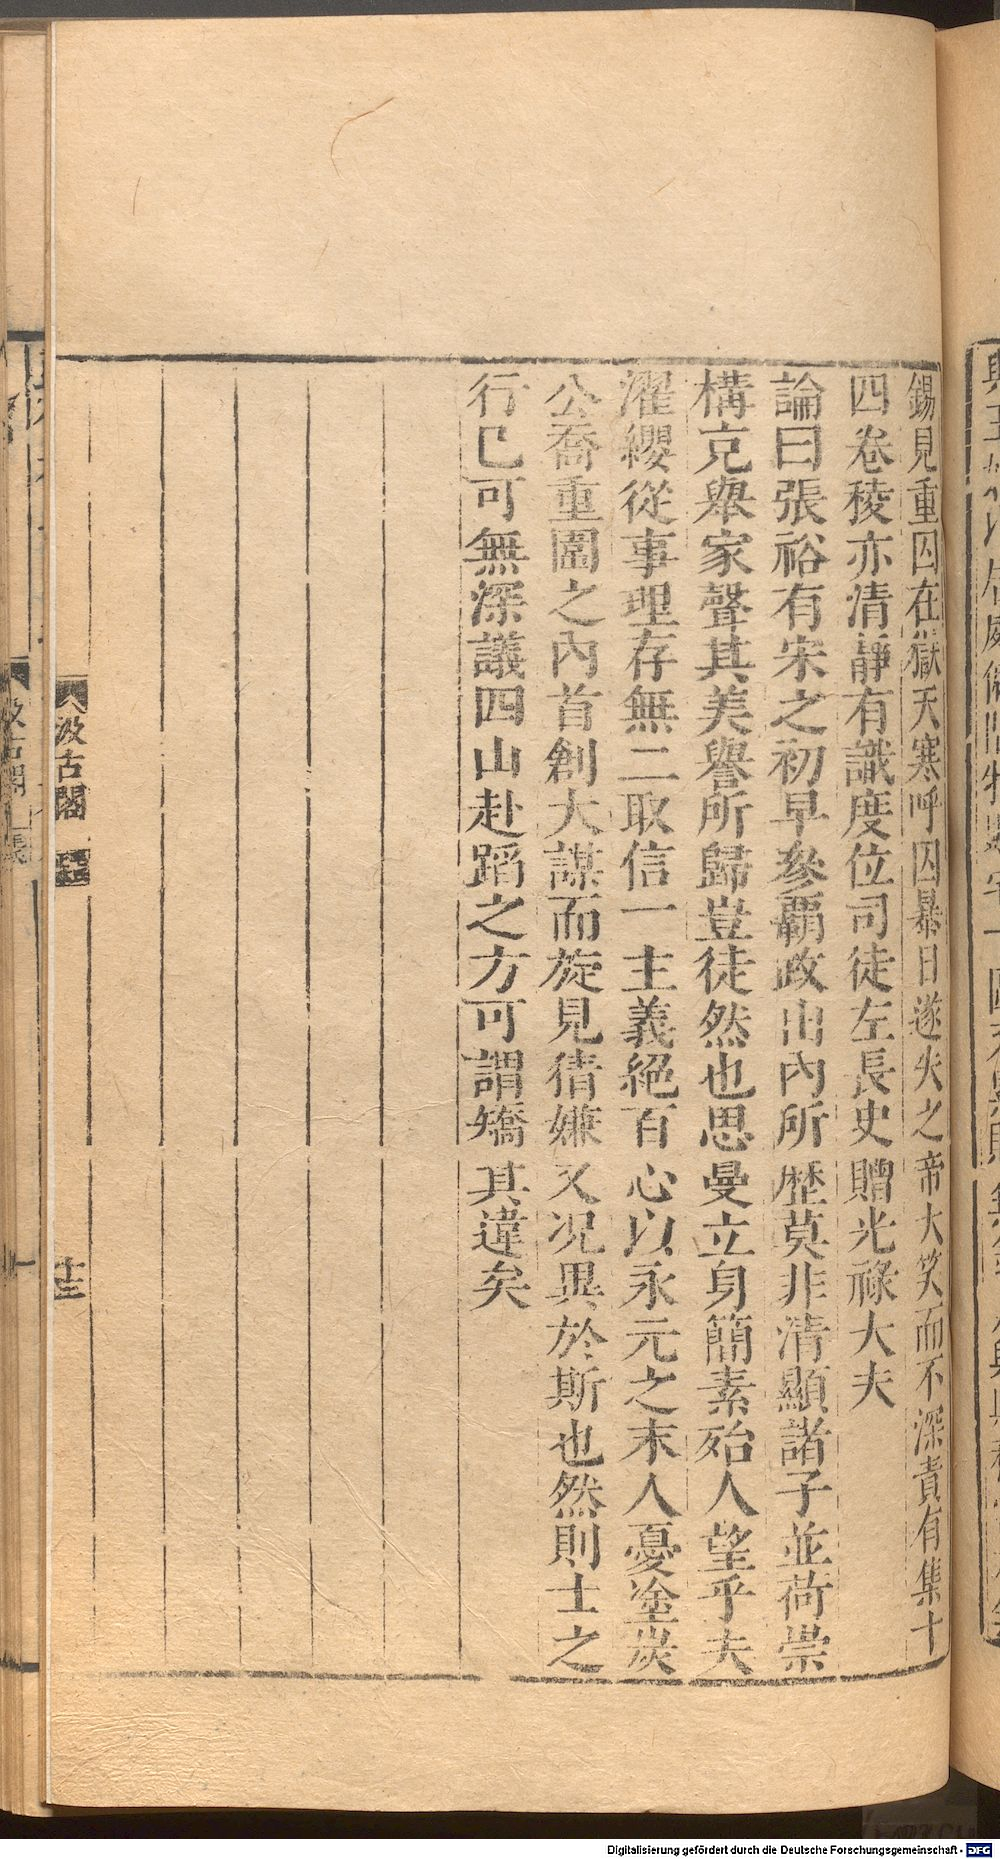 錫見重囚在獄天寒呼囚暴日遂失之帝大笑而不深責有集十
四卷稜亦清靜有識度位司徒左長史贈光祿大夫
論曰張裕有宋之初早參霸政出內所歷莫非清顯諸子並荷崇
構克舉家聲其美譽所歸豈徒然也思曼立身簡素殆人望乎夫
濯纓從事理存無二取信一主義絕百心以永元之末人憂塗炭
公喬重圍之內首創大謀而旋見猜嫌又况異於斯也然則士之
行已可無深議四山赴蹈之方可謂矯其違矣
汲古閣
十三
Digitalisierung gefördert durch die Deutsche Forschungsgemeinschaft - DFG